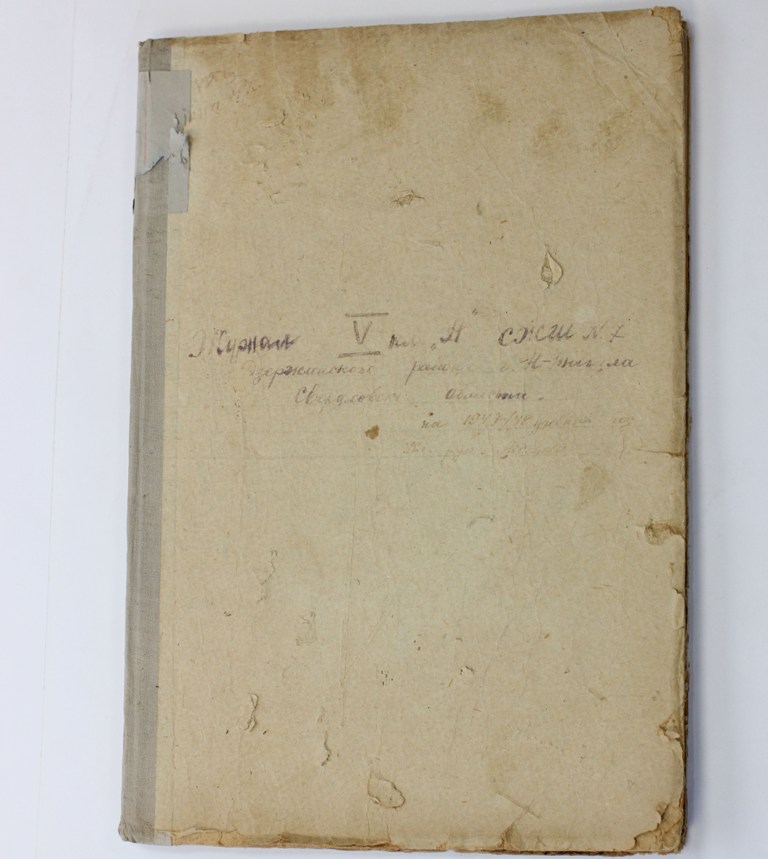 Журнал V кл. „А" СЖСШ N 1
Дзержинского района г. Н-Тагила
Свердловской области.
на 1947/48 учебный